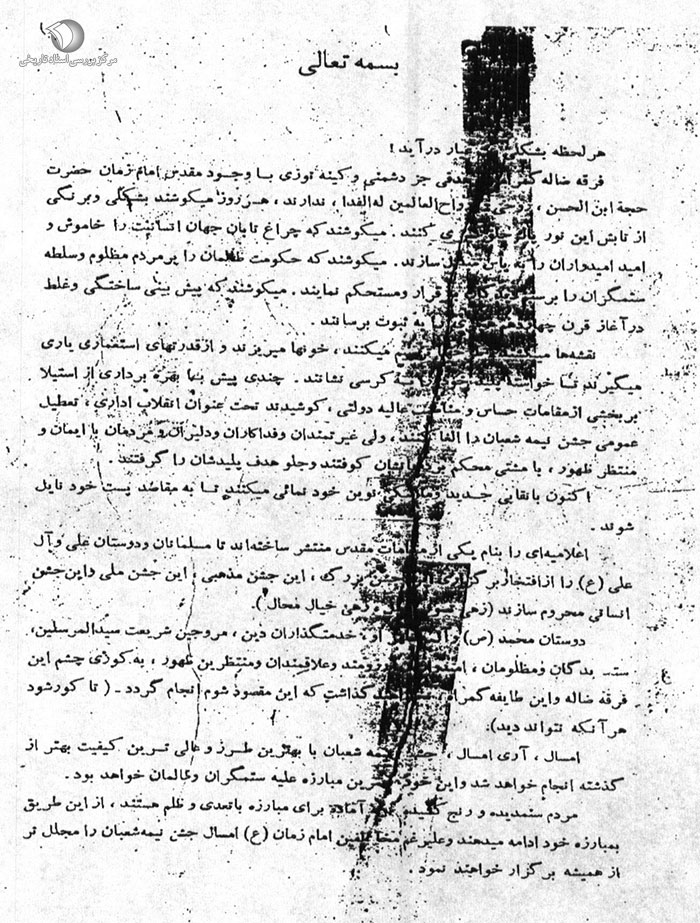 مرکز بررسی اسناد تاریخی
بسمه تعالی
هر لحظه بشکلی عیار درآید !
فرقه ضاله جز دشمنی و کینه توزی بــا وجــود مقدس امام زمان حضرت
حجة ابن الحسن ، العالمین له الفدا ، ندارند ، هــر روز میکوشند بشکلی و برنگی
از تابش این نور پاک کنند . میکوشند که چراغ تابان جهان انسانیت را خاموش و
امید امیدواران را به سازند . میکوشند که حکومت ظالمان را بر مردم مظلوم وسلطه
ستمگران را بر قرار ومستحکم نمایند . میکوشند که پیش بینی ساختگی وغلط
در آغاز قرن را به ثبوت برسانند .
نقشه‌ها میکنند ، خونها میریزند و از قدرتهای استعماری یاری
میگیرند تــا خواسته پلید به کرسی نشانند . چندی پیش بــا بهره برداری از استیلا
بر بخشی از مقامات حساس و عالیه دولتی ، کوشیدند تحت عنوان انقلاب اداری ، تعطیل
عمومی جشن نیمه شعبان را الغا کنند ، ولی غیرتمندان وفداکاران ودلیران و مردمان با ایمان و
منتظر ظهور ، با مشتی محکم بر کوفتند وجلو هدف پلیدشان را گرفتند .
اکنون با نقابی جــدید نوین خود نمائی میکنند تــا به مقاصد پست خود نایل
شوند .
اعلامیه‌ای را بنام یکی از مقامات مقدس منتشر ساخته‌اند تا مسلمانان ودوستان علی وآل
علی (ع) را از افتخار برگزاری جشن بزرگ ، این جشن مذهبی ، این جشن ملی واین جشن
انسانی محروم سازند (زهی خیال محال ).
دوستان محمد (ص) و آل او ، خدمتگذاران دین ، مروجین شریعت سیدالمرسلین،
ستمــدیدگان ومظلومان ، وعلاقمندان ومنتظرین ظهور ، به کوری چشم این
فرقه ضاله واین طایفه گمراه گذاشت که این مقصود شوم انجام گردد ـ ( تا کور شود
هر آنکه نتواند دید).
امسال ، آری امسال ، جشن نیمه شعبان با بهترین طــرز و عالی تــرین کیفیت بهتر از
گذشته انجام خواهد شد واین خود مبارزه علیه ستمگران وظالمان خواهد بود .
مردم ستمدیده و رنج کشیده آماده برای مبارزه باتعدی و ظلم هستند ، از این طریق
بمبارزه خود ادامه میدهند وعلیرغم مخالفین امام زمان (ع) امسال جشن نیمه شعبان را مجلل تر
از همیشه برگزار خواهند نمود .